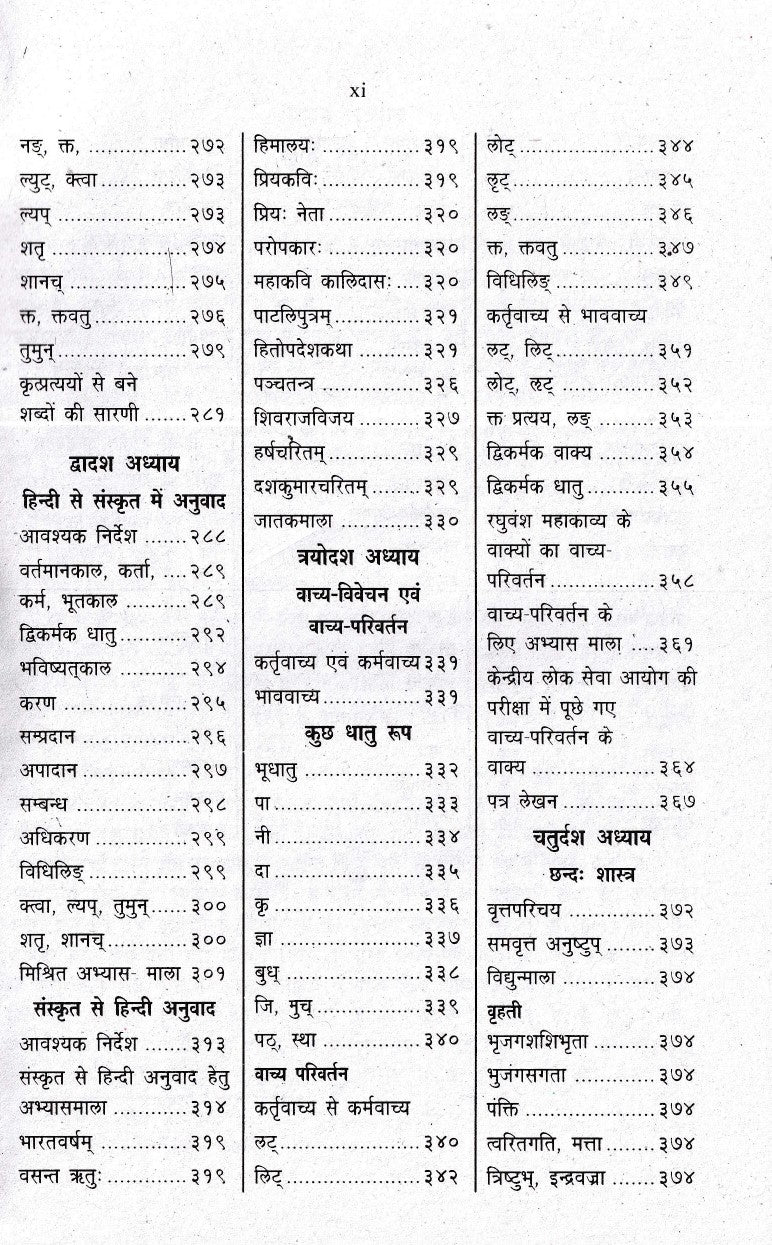 xi
नङ्, क्त, ................२७२
ल्युट्, क्त्वा..............२७३
ल्यप् .....................२७३
शतृ ......................२७४
शानच् ...................२७५
क्त, क्तवतु ..............२७६
तुमुन्......................२७९
कृत्प्रत्ययों से बने
शब्दों की सारणी .......२८१
द्वादश अध्याय
हिन्दी से संस्कृत में अनुवाद
आवश्यक निर्देश .......२८८
वर्तमानकाल, कर्ता, ....२८९
कर्म, भूतकाल ..........२८९
द्विकर्मक धातु............२९२
भविष्यत्काल ............२९४
करण ....................२९५
सम्प्रदान .................२९६
अपादान .................२९७
सम्बन्ध ..................२९८
अधिकरण ...............२९९
विधिलिङ् ................२९९
क्त्वा, ल्यप्, तुमुन्......३००
शतृ, शानच् .............३००
मिश्रित अभ्यास- माला ३०१
संस्कृत से हिन्दी अनुवाद
आवश्यक निर्देश .......३१३
संस्कृत से हिन्दी अनुवाद हेतु
अभ्यासमाला ............३१४
भारतवर्षम् ...............३१९
वसन्त ऋतुः .............३१९
हिमालयः ................३१९
प्रियकविः................३१९
प्रियः नेता ...............३२०
परोपकारः ...............३२०
महाकवि कालिदासः ....३२०
पाटलिपुत्रम् ..............३२१
हितोपदेशकथा ..........३२१
पञ्चतन्त्र ................३२६
शिवराजविजय ..........३२७
हर्षचरितम् ...............३२९
दशकुमारचरितम् ........३२९
जातकमाला .............३३०
त्रयोदश अध्याय
वाच्य-विवेचन एवं
वाच्य-परिवर्तन
कर्तृवाच्य एवं कर्मवाच्य३३१
भाववाच्य................३३१
कुछ धातु रूप
भूधातु ...................३३२
पा........................३३३
नी........................३३४
दा........................३३५
कृ ........................३३६
ज्ञा .......................३३७
बुध् ......................३३८
जि, मुच् .................३३९
पठ्, स्था ................३४०
वाच्य परिवर्तन
कर्तृवाच्य से कर्मवाच्य
लट्.......................३४०
लिट् .....................३४२
लोट् .....................३४४
लृट्.......................३४५
लङ् ......................३४६
क्त, क्तवतु ..............३४७
विधिलिङ् ................३४९
कर्तृवाच्य से भाववाच्य
लट्, लिट्................३५१
लोट्, लृट् ...............३५२
क्त प्रत्यय, लङ् ........३५३
द्विकर्मक वाक्य .........३५४
द्विकर्मक धातु ...........३५५
रघुवंश महाकाव्य के
वाक्यों का वाच्य-
परिवर्तन .................३५८
वाच्य-परिवर्तन के
लिए अभ्यास माला ....३६१
केन्द्रीय लोक सेवा आयोग की
परीक्षा में पूछे गए
वाच्य-परिवर्तन के
वाक्य ....................३६४
पत्र लेखन ...............३६७
चतुर्दश अध्याय
छन्दः शास्त्र
वृत्तपरिचय ..............३७२
समवृत्त अनुष्टुप् ........३७३
विद्युन्माला ...............३७४
वृहती
भृजगशशिभृता ..........३७४
भुजंगसगता .............३७४
पंक्ति ....................३७४
त्वरितगति, मत्ता ........३७४
त्रिष्टुभ्, इन्द्रवज्रा .......३७४